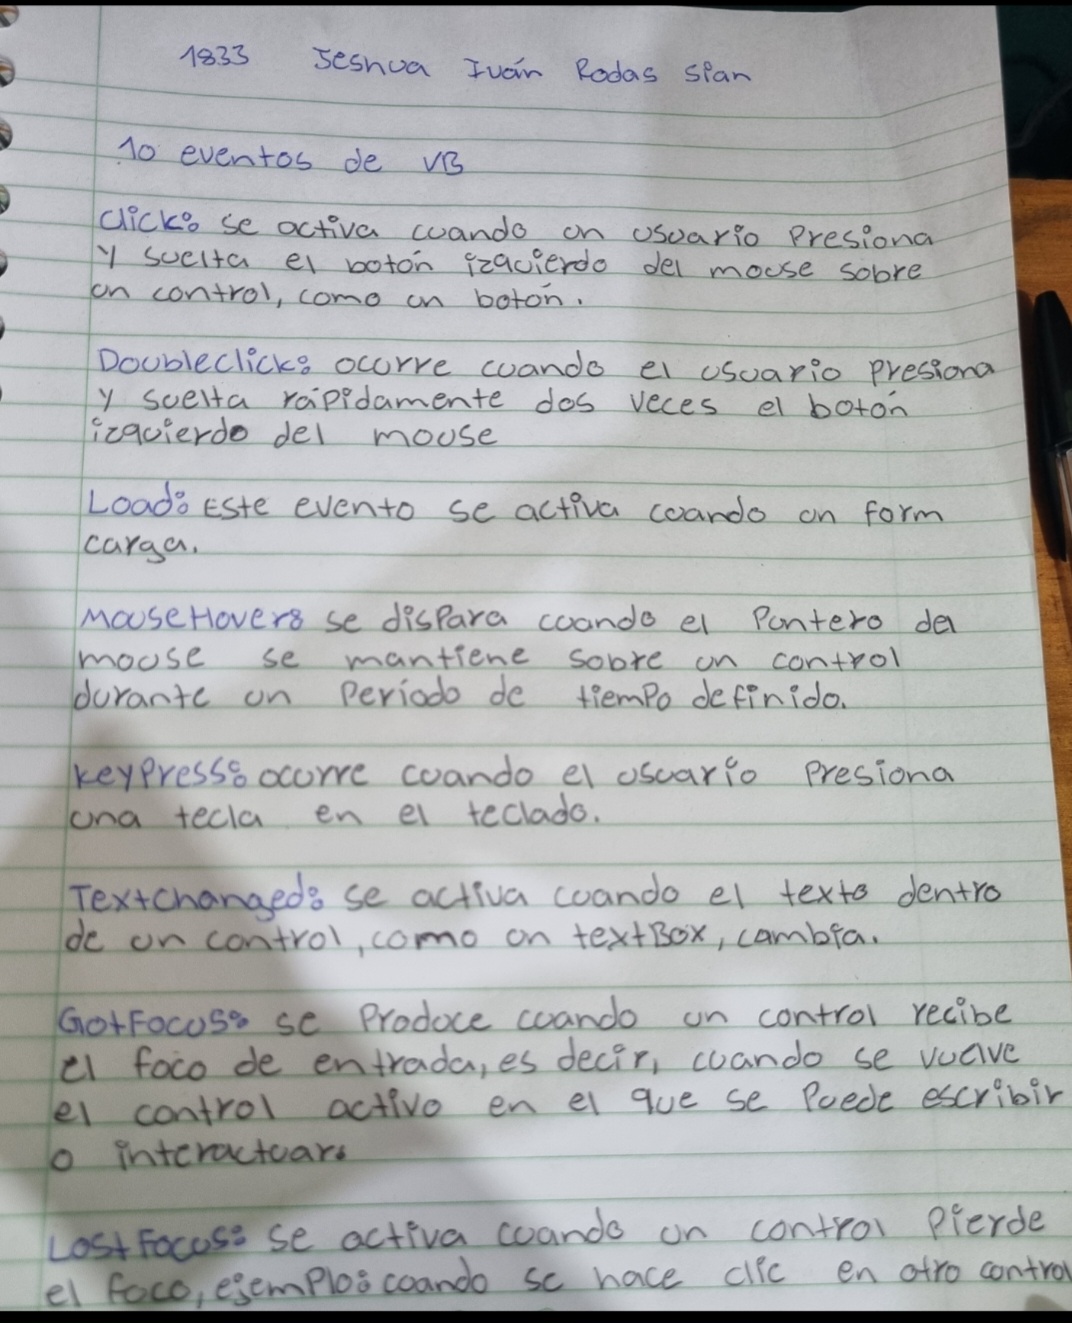 1833 Jeshua Iván Rodas Sian
10 eventos de VB
Click: se activa cuando un usuario Presiona
y suelta el botón izquierdo del mouse sobre
un control, como un botón.
Doubleclick: ocurre cuando el usuario presiona
y suelta rápidamente dos veces el botón
izquierdo del mouse
Load: Este evento se activa cuando un form
carga.
MouseHover: se disPara cuando el Puntero del
mouse se mantiene sobre un control
durante un Período de tiemPo definido.
KeyPress: ocurre cuando el usuario Presiona
una tecla en el teclado.
Textchanged: se activa cuando el texto dentro
de un control, como un textBox, cambia.
GotFocus: se Produce cuando un control recibe
el foco de entrada, es decir, cuando se vuelve
el control activo en el que se Puede escribir
o interactuar.
LostFocus: se activa cuando un control Pierde
el foco, ejemPlo: cuando se hace clic en otro control